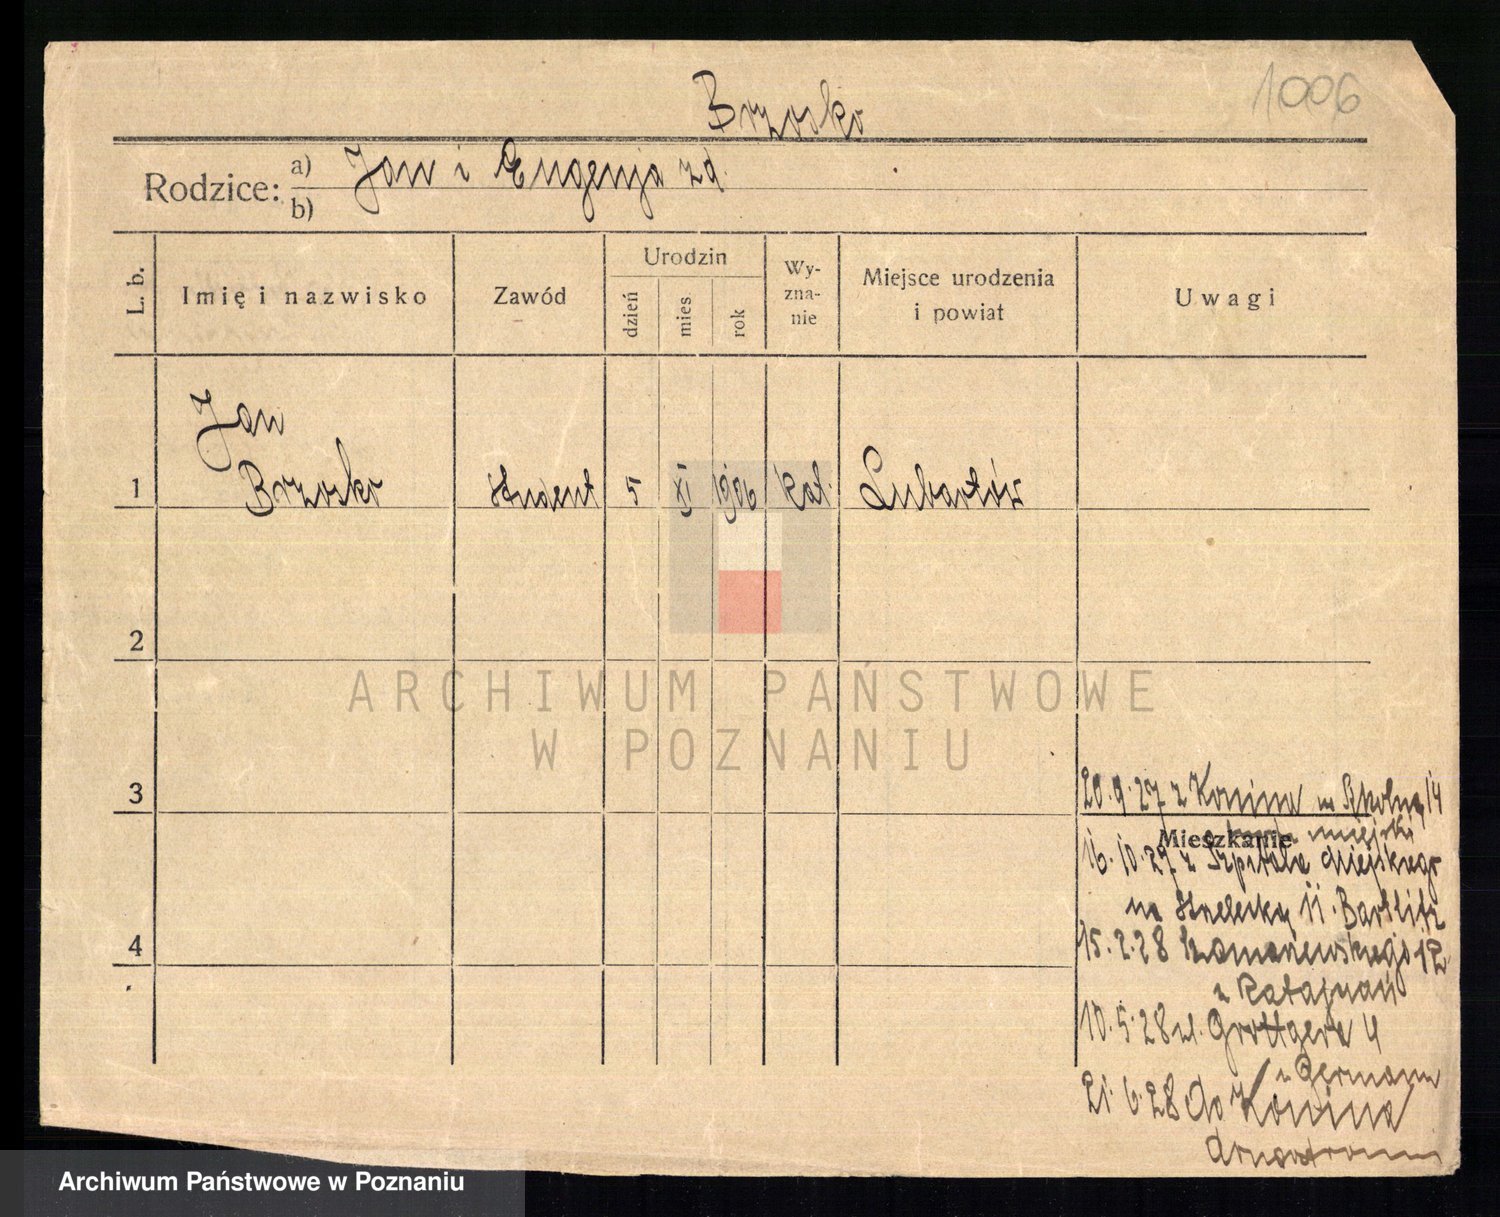 1006
Brzosko
Rodzice: a) Jan i Eugenja zd.
b)
L. b.
Imię i nazwisko
Zawód
Urodzin
dzień
mies.
rok
Wy-
zna-
nie
Miejsce urodzenia
i powiat
Uwagi
Jan
1 Brzosko student 5 XI 1906 kat. Lubartów
2
ARCHIWUM PAŃSTWOWE
W POZNANIU
3
20.9.27 z Konina Szkolna 14
miejski
Mieszkanie
16.10.27 z Szpitala miejskiego
na Strzelecką 11.
4
15.2.28 12
z Ratajczak
10.5.28 ul. Grottgera 4
z Germann
21.6.28 do Konina
Archiwum Państwowe w Poznaniu